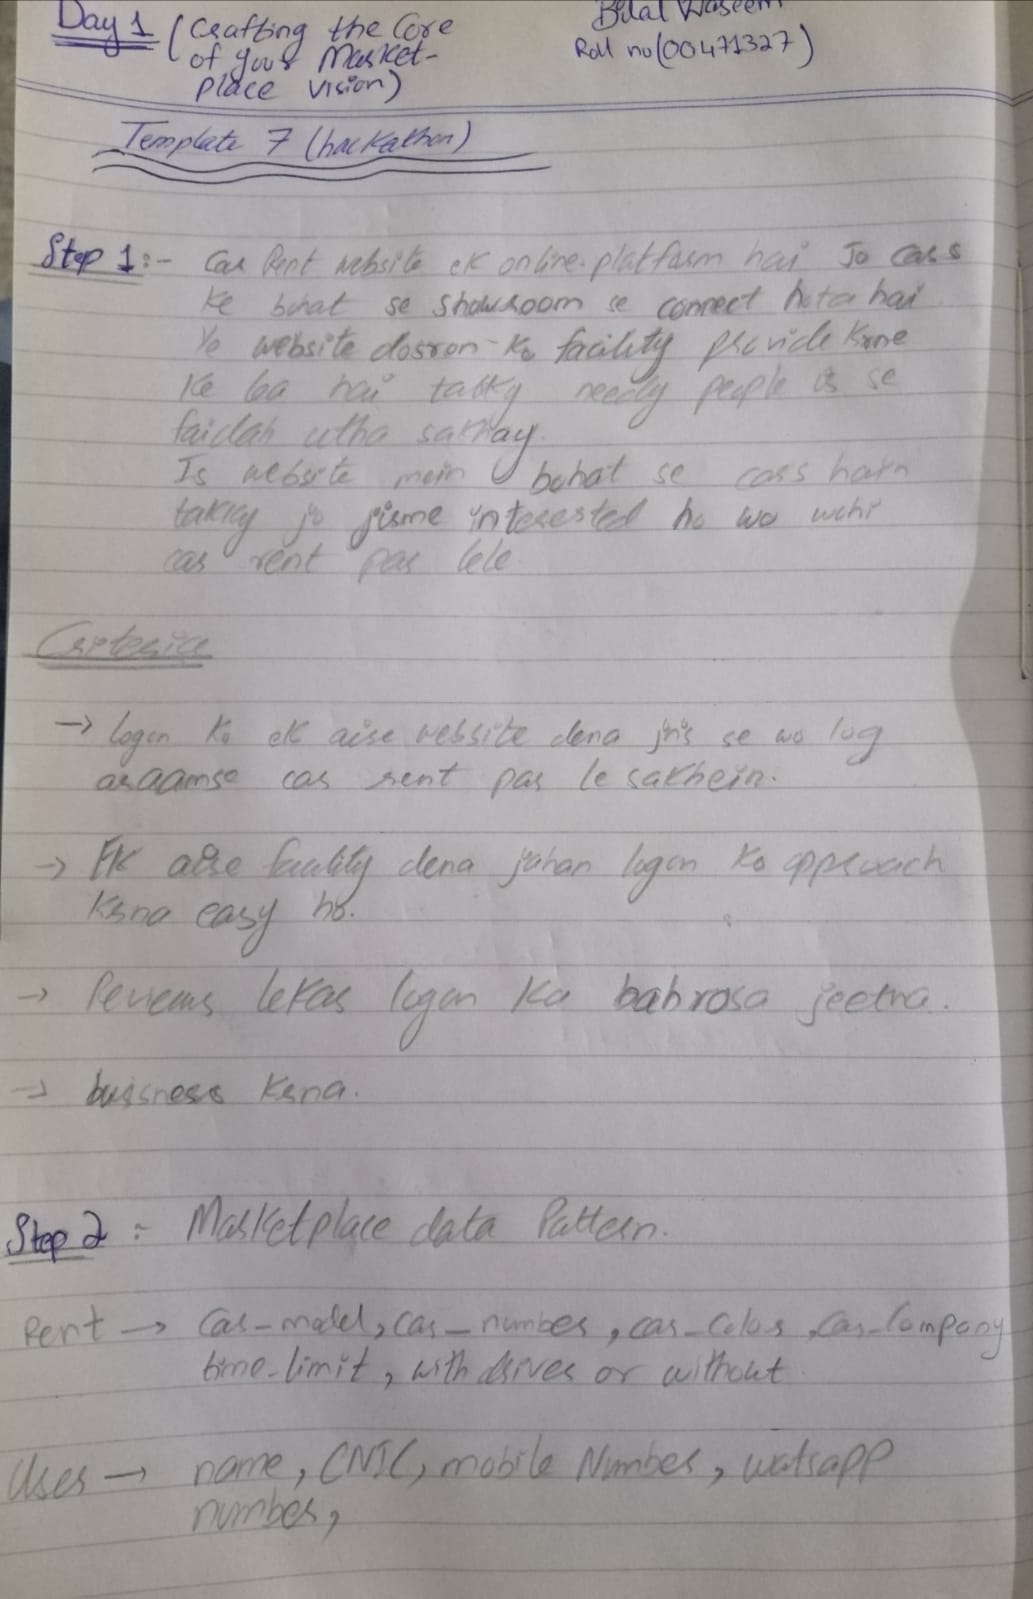 Day 1 (Crafting the Core
of your Market-
place vision)
Bilal Waseem
Roll no (00471327)
Template 7 (hackathon)
Step 1:- Car Rent website ek online platform hai Jo cars
ke bohat se showroom se connect hota hai
Ye website dosron ko facility provide krne
ke lea hai taky needy people is se
faidah utha sakhay.
Is website mein bohat se cars hain
taky jo jisme interested ho wo wohi
car rent par lele
Criteria
→ logon ko ek aise website dena jris se wo log
araamse car rent par le sakhein.
→ Ek aise facility dena jahan logon ko approach
krna easy ho.
→ Reviews lekar logon ka bahrosa jeetna.
→ buisness krna.
Step 2 :- Marketplace data Pattern.
Rent → Car-model, car_number, car-color, Car-Company
time-limit, with driver or without.
User → name, CNIC, mobile Number, watsapp
number,